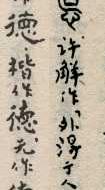 許解作「外得于人
德 楷作德、元作